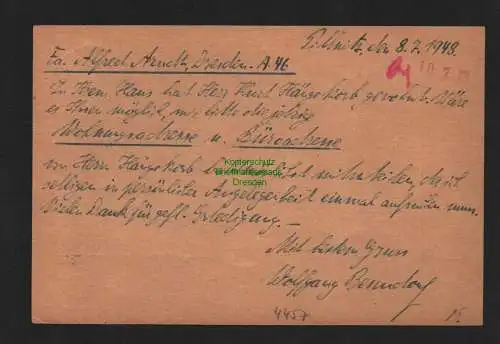 Pillnitz, den 8.7.1948.
Fa. Alfred Arndt, Dresden-A. 46
In Ihrem Haus hat Herr Kurt Hängekorb gewohnt. Wäre
es Ihnen möglich, mir bitte die jetzige
Wohnungsadresse u. Büroadresse
von Herrn Hängekorb mitzuteilen, da ich
selbigen in persönlicher Angelegenheit einmal aufsuchen muss.
Vielen Dank für gefl. Erledigung. –
Mit bestem Gruss
Wolfgang Benndorf
4457
Kopierschutz
Briefmarkenoase
Dresden